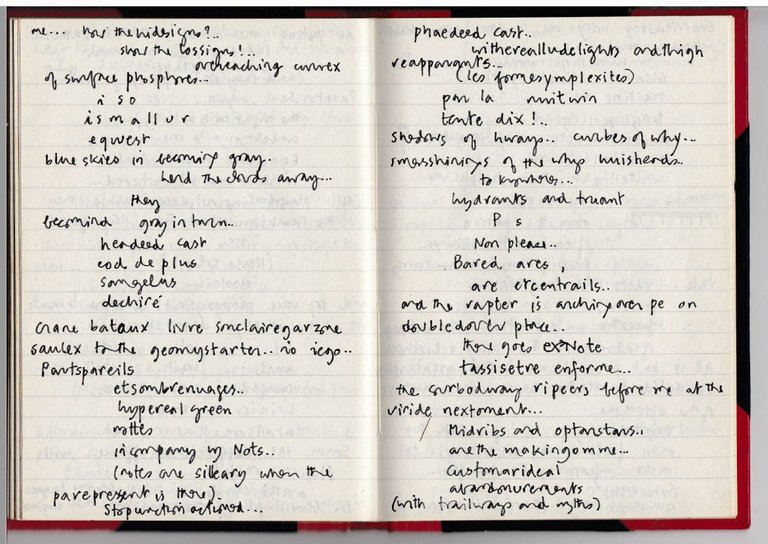 me... how the hidesigns?...
show the cossigns!...
overeaching curvex
of surface phosphores...
i s o
i s m a l l u r
e q w e s t
blue skies in becoming gray..
herd the clouds away...
they
becomind gray in turn..
headeed cast
cod de plus
sangelus
dechiré
crane bataux livre sinclairegarzone
saulex to the geomystarter.. no iego..
Partspareils
etsombrenuages..
hypereal green
nottes
incompany by Nots..
(notes are silleary when the
parepresent is there).
Stopunction actioned...
phaedeed cast..
withereallude lights and thigh
reapparants..
(les formesymplexites)
par la nuitwin
toute dix!..
shadows of hways.. curbes of why...
smasshinings of the whys huisheads..
to kywheres...
hydrants and truant
P s
Non please..
Bared arcs,
are etcentrails..
and the rapter is arching over pe on
doubledover place...
there goes ex Note
tassisetre enforme...
the curbodway ripeers before me at the
viride nextoment...
Midribs and optanstars..
are the makingomme...
customarideal
abandonurements
(with trailways and myths)